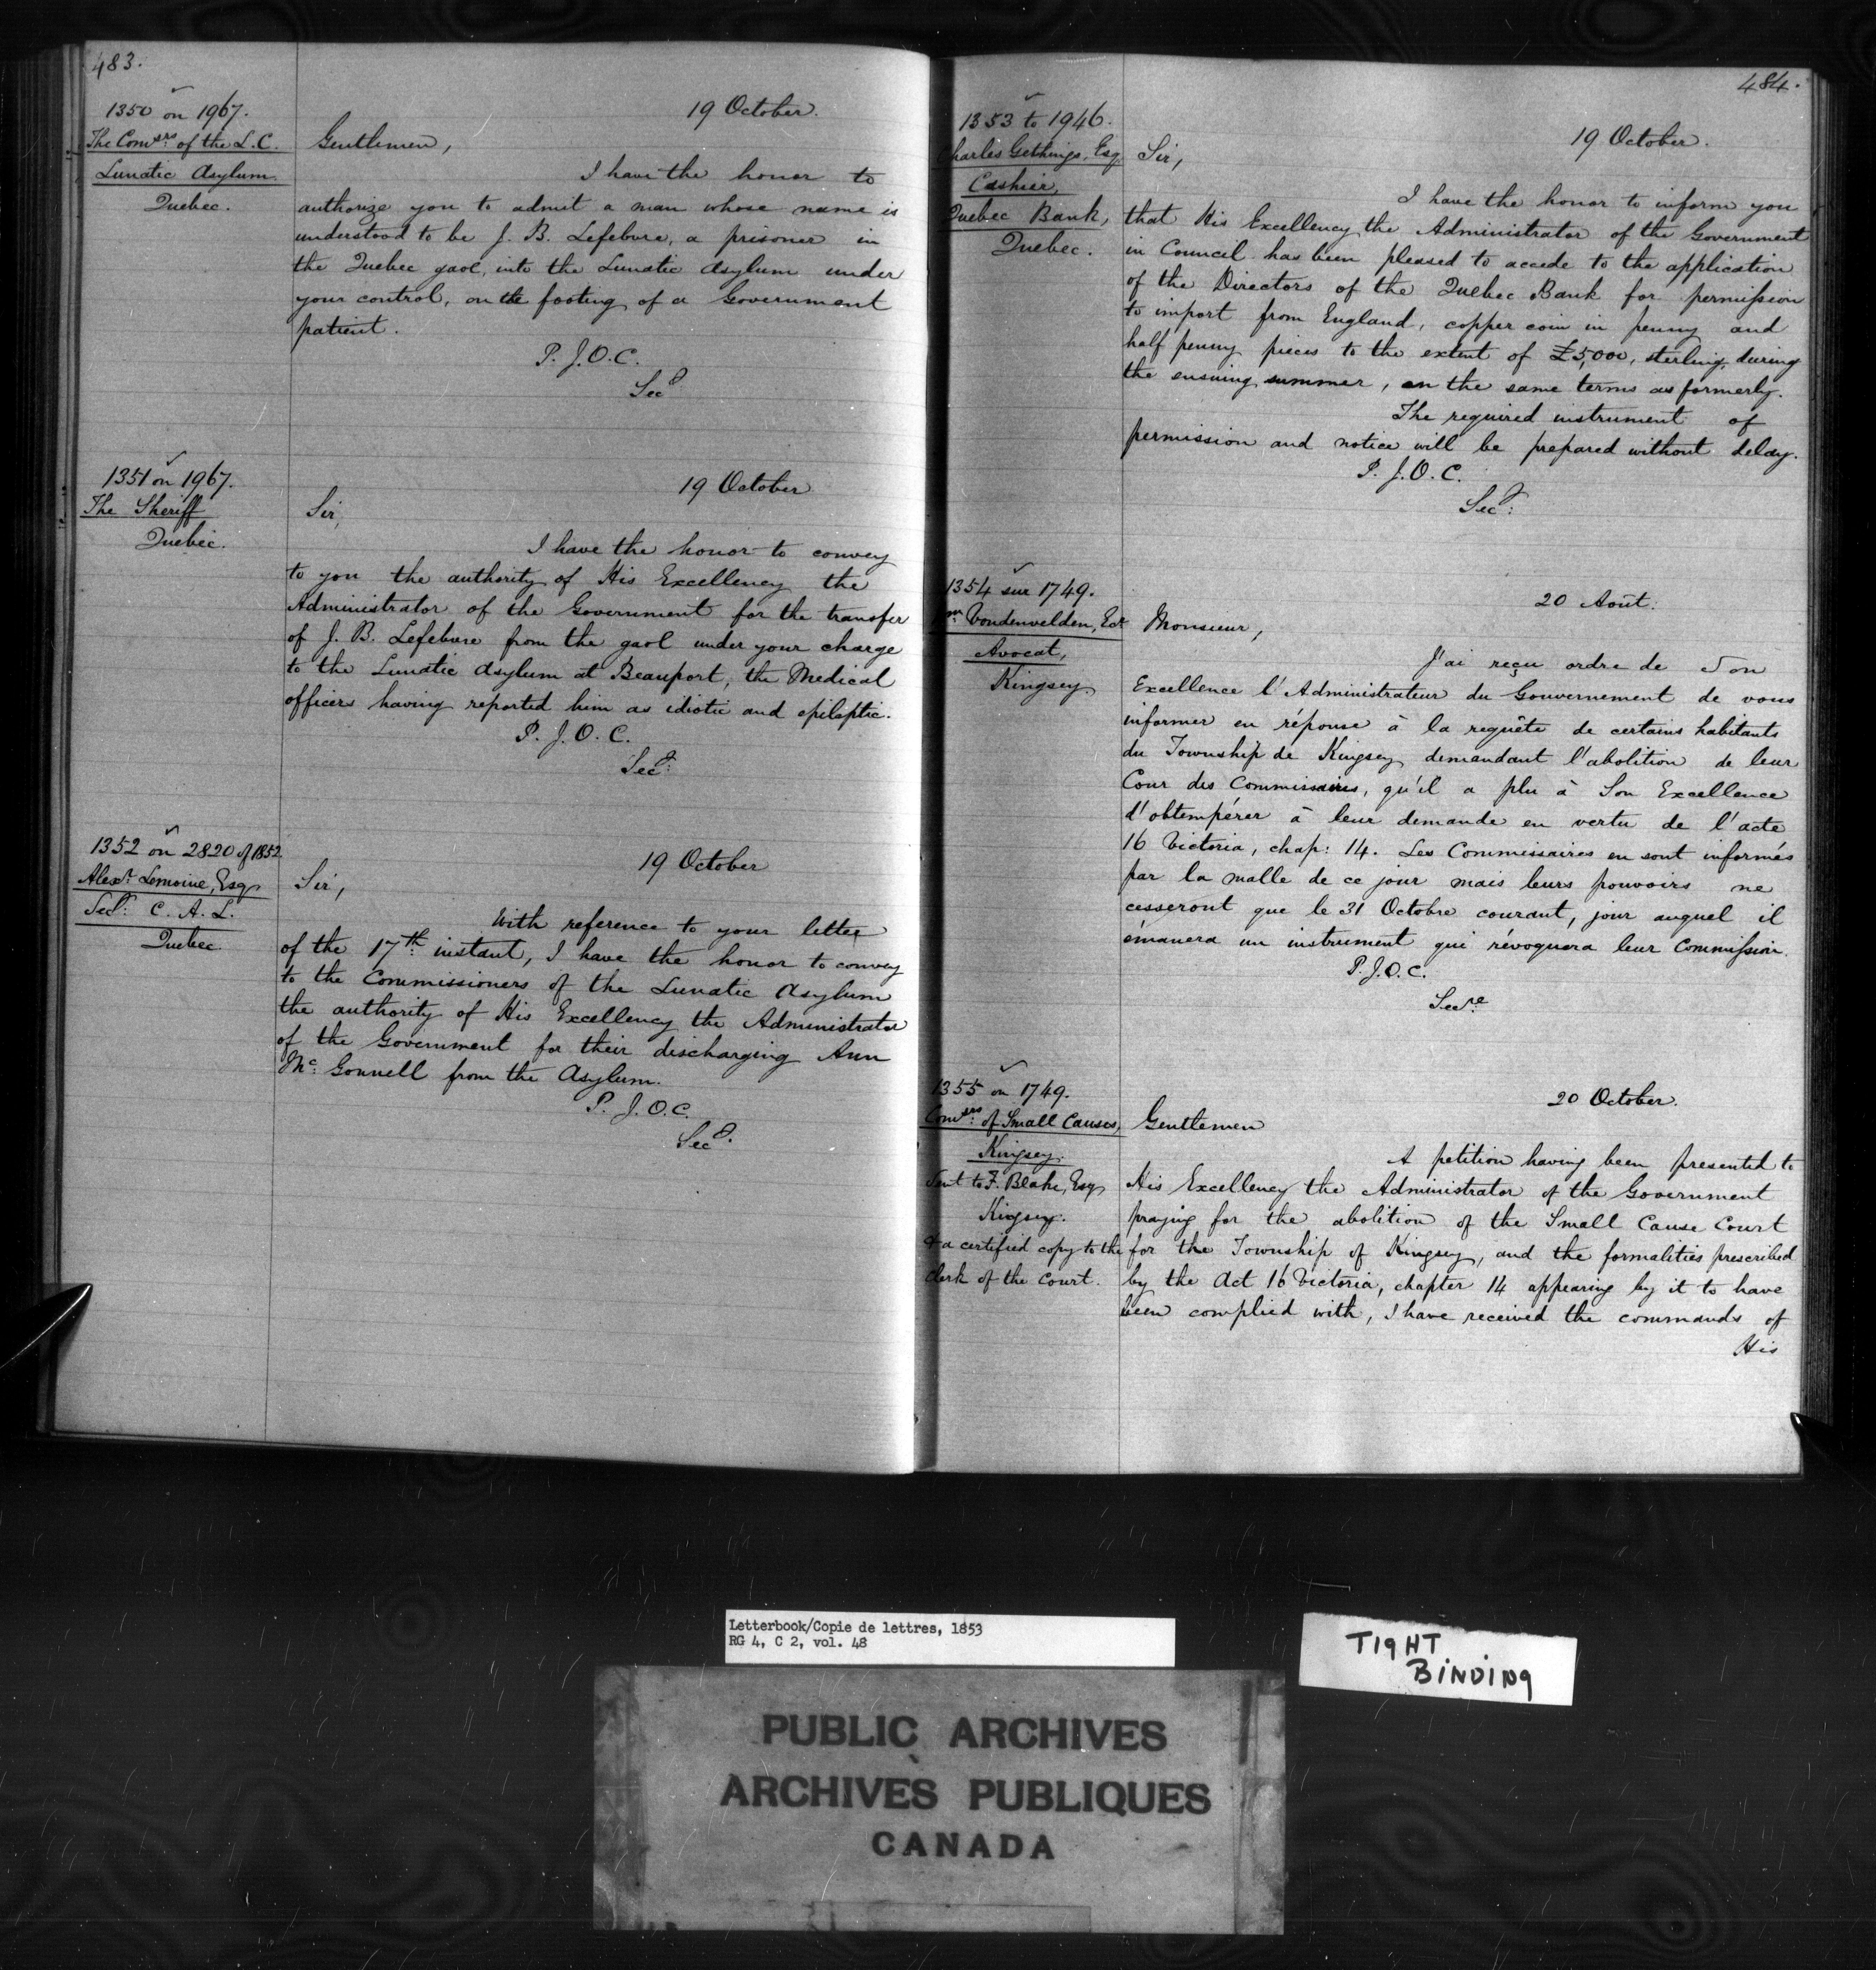 483.
1350 on 1967.
The Comsrs. of the L. C.
Lunatic Asylum.
Quebec.
19 October.
Gentlemen,
I have the honor to
authorize you to admit a man whose name is
understood to be J. B. Lefebvre, a prisoner in
the Quebec gaol, into the Lunatic Asylum under
your control, on the footing of a Government
patient.
P. J. O. C.
Secy
1351 on 1967.
The Sheriff
Quebec.
19 October
Sir,
I have the honor to convey
to you the authority of His Excellency the
Administrator of the Government for the transfer
of J. B. Lefebvre from the gaol under your charge
to the Lunatic Asylum at Beauport, the Medical
officers having reported him as idiotic and epileptic.
P. J. O. C.
Secy.
1352 on 2820 of 1852
Alexr. Lemoine, Esq.
Secy. C. A. L.
Quebec.
19 October
Sir,
With reference to your letter
of the 17th. instant, I have the honor to convey
to the Commissioners of the Lunatic Asylum
the authority of His Excellency the Administrator
of the Government for their discharging Ann
Mc. Gonnell from the Asylum.
P. J. O. C.
Secy.
484.
1353 to 1946.
Charles Gethings, Esq
Cashier,
Quebec Bank,
Quebec.
19 October.
Sir,
I have the honor to inform you
that His Excellency the Administrator of the Government
in Council has been pleased to accede to the application
of the Directors of the Quebec Bank for permission
to import from England, copper coin in penny and
half penny pieces to the extent of £5,000, sterling, during
the ensuing summer, on the same terms as formerly.
The required instrument of
permission and notice will be prepared without delay.
P. J. O. C.
Secy.
1354 sur 1749.
Wm. Vondenvelden, Ecr
Avocat,
Kingsey.
20 Août.
Monsieur,
J'ai reçu ordre de Son
Excellence l'Administrateur du Gouvernement de vous
informer en réponse à la requête de certains habitants
du Township de Kingsey demandant l'abolition de leur
Cour des Commissaires, qu'il a plu à Son Excellence
d'obtempérer à leur demande en vertu de l'acte
16 Victoria, chap: 14. Les Commissaires en sont informés
par la malle de ce jour mais leurs pouvoirs ne
cesseront que le 31 Octobre courant, jour auquel il
émanera un instrument qui révoquera leur Commission.
P. J. O. C.
Secre
1355 on 1749.
Comsrs. of Small Causes,
Kingsey.
Sent to F. Blake, Esq
Kigsey.
& a certified copy to the
clerk of the Court.
20 October.
Gentlemen
A petition having been presented to
His Excellency the Administrator of the Government
praying for the abolition of the Small Cause Court
for the Township of Kingsey, and the formalities prescribed
by the Act 16 Victoria, chapter 14 appearing by it to have
been complied with, I have received the commands of
His
Letterbook/Copie de lettres, 1853
RG 4, C 2, vol. 48
TIGHT
BINDING
PUBLIC ARCHIVES
ARCHIVES PUBLIQUES
CANADA